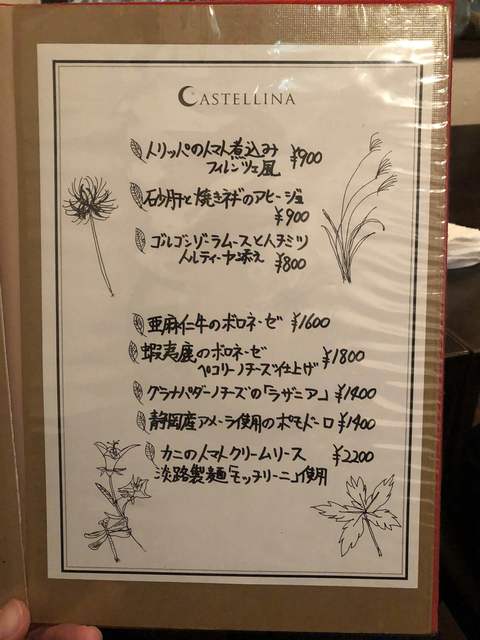 CASTELLINA
トリッパのトマト煮込み ¥900
フィレンツェ風
砂肝と焼きネギのアヒージョ
¥900
ゴルゴンゾーラムースとハチミツ
トルティーヤ添え ¥800
亜麻仁牛のボロネーゼ ¥1600
蝦夷鹿のボロネーゼ ¥1800
ペコリーノチーズ仕上げ
グラナパダーノチーズの「ラザニア」 ¥1400
静岡産アメーラ使用のポモドーロ ¥1400
カニのトマトクリームソース ¥2200
淡路製麺「モッチリーニ」使用